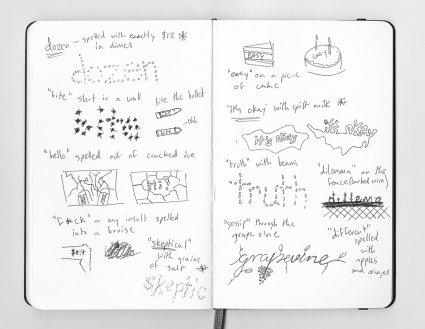 dozen - spelled with exactly $12
in dimes
dozen
"bite" shot in a wall
bite the bullet
bite
"hello" spelled out of cracked ice
"F#*ck" or any insult spelled
into a bruise
"skeptical"
with grains
of salt
skeptic
EASY
EASY
"easy" on a piece
of cake
"it's okay" with spilt milk
it's okay
it's okay
"truth" with beans
truth
"dilemma" on the
fence (barbed wire)
dilemma
"gossip" through the
grape vine
grapevine
"different"
spelled
with
apples
and oranges